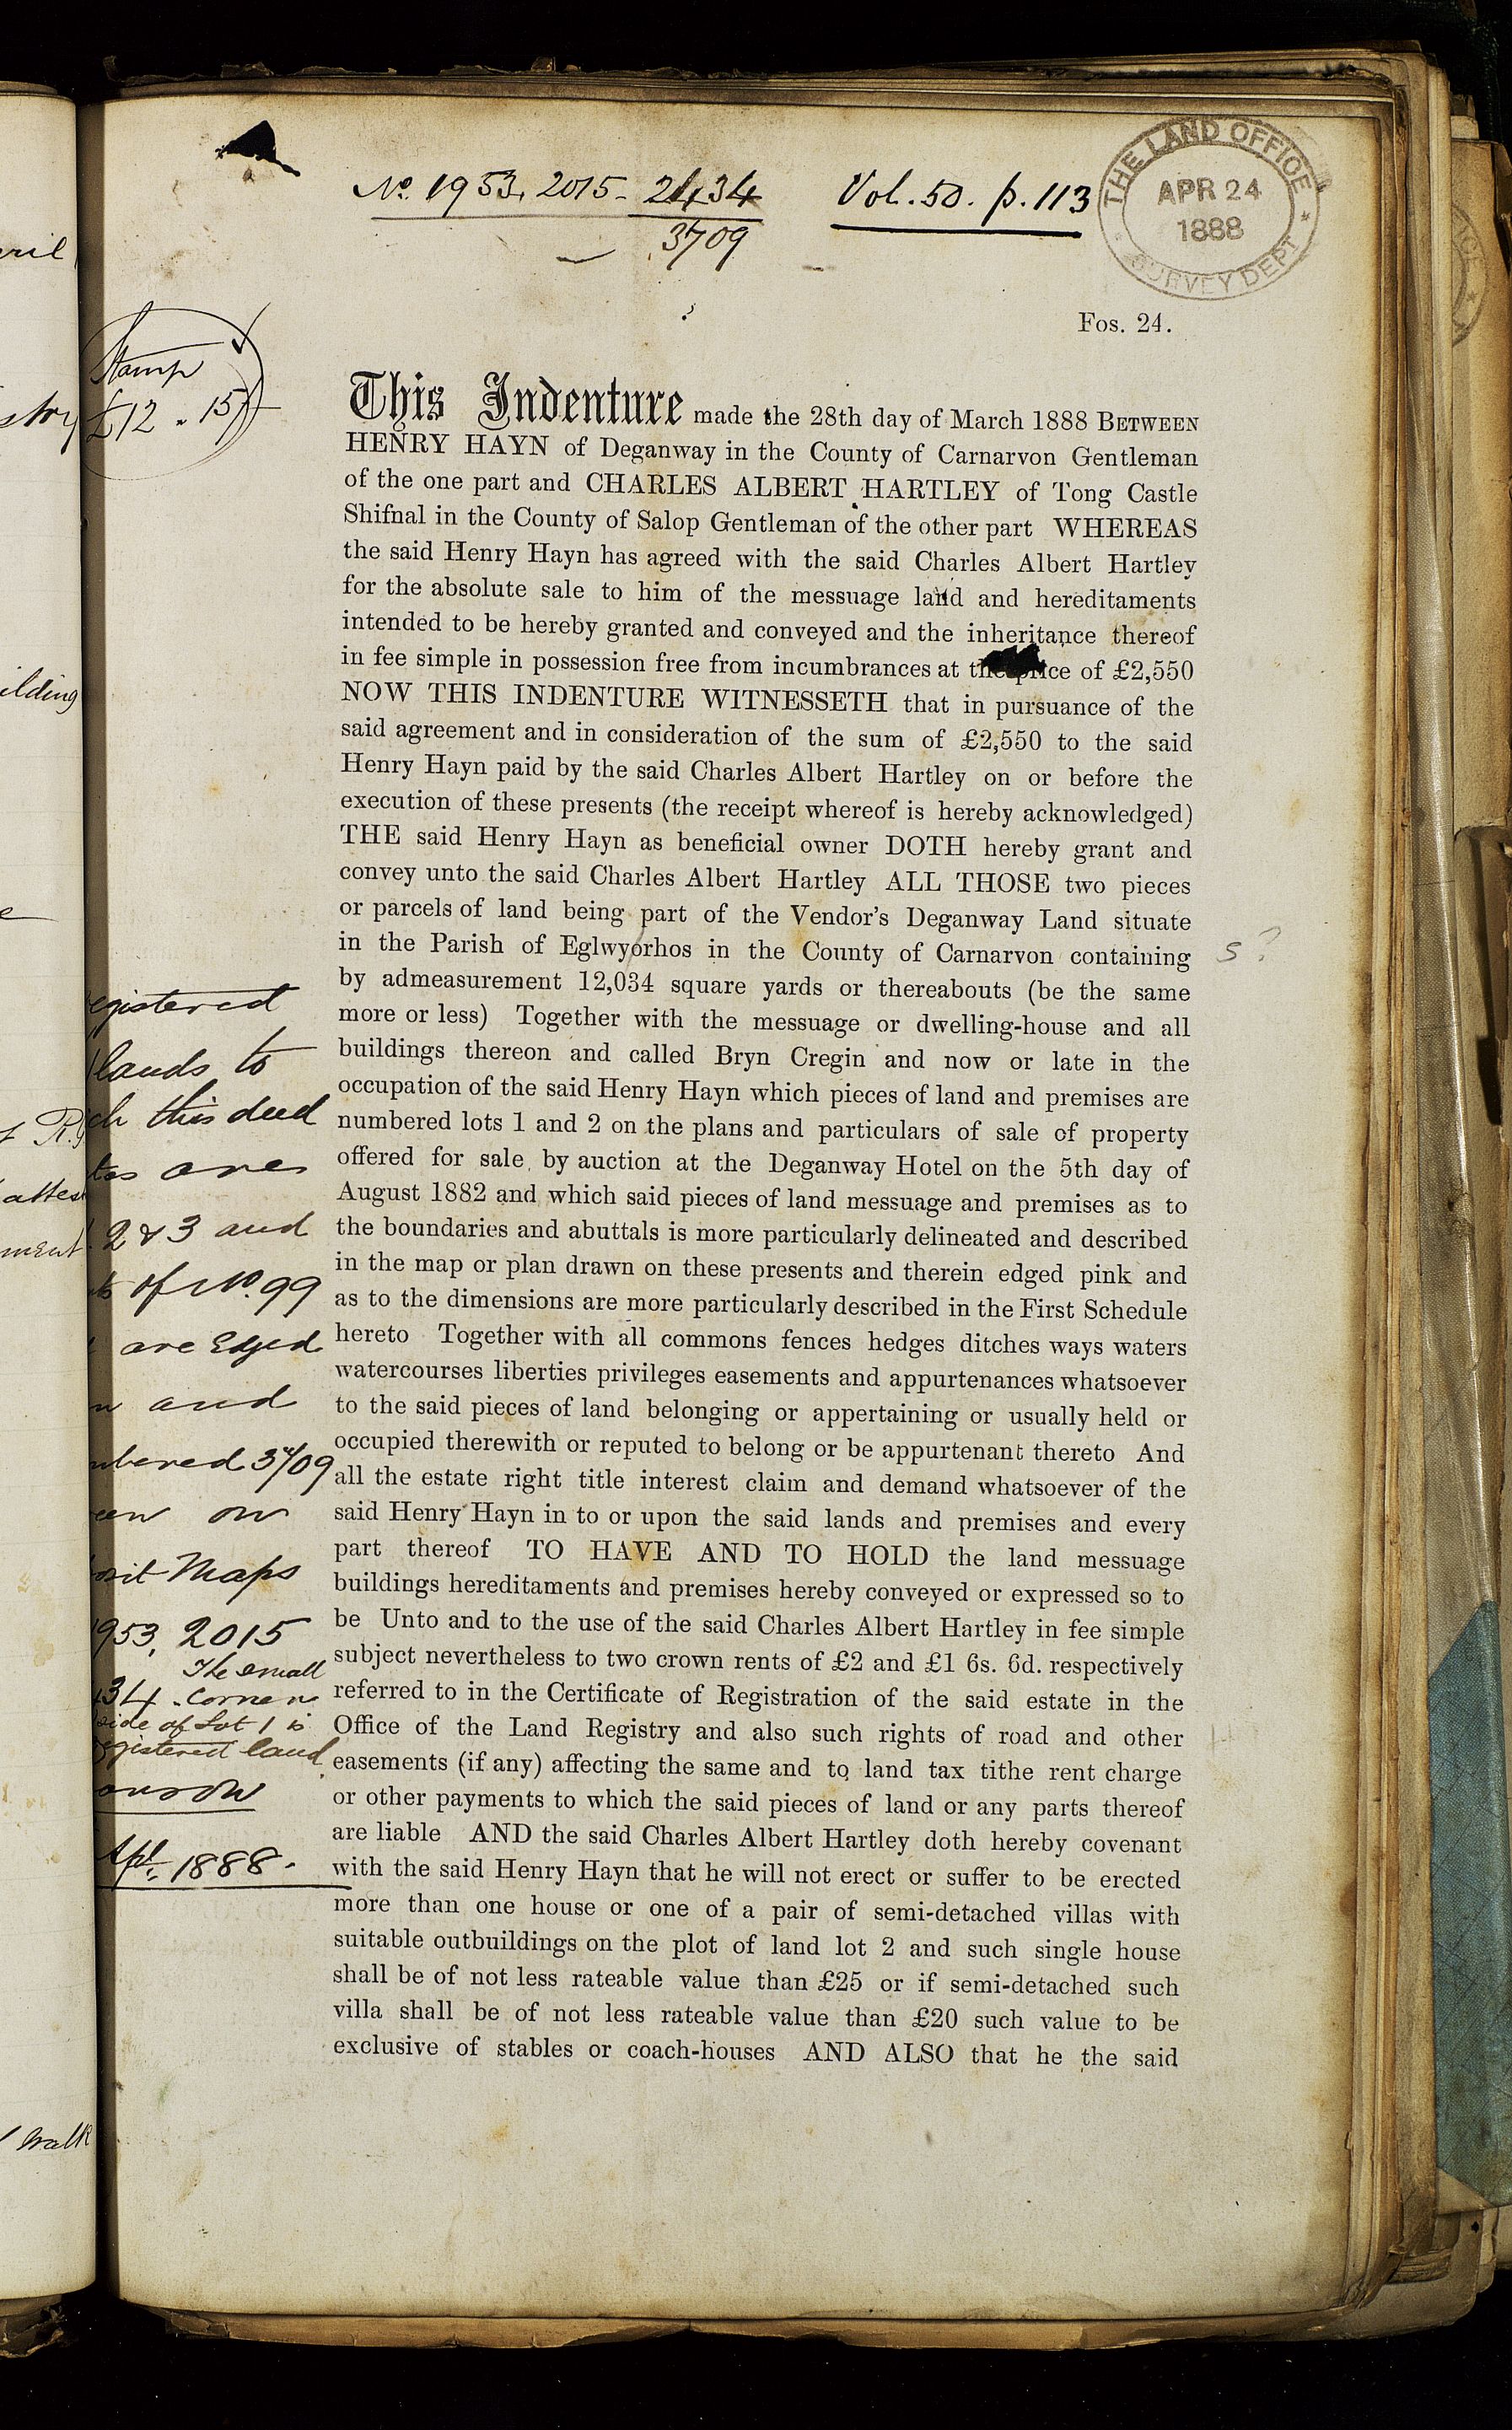 No. 1953, 2015 - 2434
3709
Vol. 50. p. 113
THE LAND OFFICE
APR 24
1888
SURVEY DEPT
Fos. 24.
Stamp
£12 . 15/-
This Indenture made the 28th day of March 1888 BETWEEN
HENRY HAYN of Deganway in the County of Carnarvon Gentleman
of the one part and CHARLES ALBERT HARTLEY of Tong Castle
Shifnal in the County of Salop Gentleman of the other part WHEREAS
the said Henry Hayn has agreed with the said Charles Albert Hartley
for the absolute sale to him of the messuage land and hereditaments
intended to be hereby granted and conveyed and the inheritance thereof
in fee simple in possession free from incumbrances at the price of £2,550
NOW THIS INDENTURE WITNESSETH that in pursuance of the
said agreement and in consideration of the sum of £2,550 to the said
Henry Hayn paid by the said Charles Albert Hartley on or before the
execution of these presents (the receipt whereof is hereby acknowledged)
THE said Henry Hayn as beneficial owner DOTH hereby grant and
convey unto the said Charles Albert Hartley ALL THOSE two pieces
or parcels of land being part of the Vendor's Deganway Land situate
in the Parish of Eglwyorhos in the County of Carnarvon containing
s?
by admeasurement 12,034 square yards or thereabouts (be the same
more or less) Together with the messuage or dwelling-house and all
buildings thereon and called Bryn Cregin and now or late in the
occupation of the said Henry Hayn which pieces of land and premises are
numbered lots 1 and 2 on the plans and particulars of sale of property
offered for sale by auction at the Deganway Hotel on the 5th day of
August 1882 and which said pieces of land messuage and premises as to
the boundaries and abuttals is more particularly delineated and described
in the map or plan drawn on these presents and therein edged pink and
as to the dimensions are more particularly described in the First Schedule
hereto Together with all commons fences hedges ditches ways waters
watercourses liberties privileges easements and appurtenances whatsoever
to the said pieces of land belonging or appertaining or usually held or
occupied therewith or reputed to belong or be appurtenant thereto And
all the estate right title interest claim and demand whatsoever of the
said Henry Hayn in to or upon the said lands and premises and every
part thereof TO HAVE AND TO HOLD the land messuage
buildings hereditaments and premises hereby conveyed or expressed so to
be Unto and to the use of the said Charles Albert Hartley in fee simple
subject nevertheless to two crown rents of £2 and £1 6s. 6d. respectively
referred to in the Certificate of Registration of the said estate in the
Office of the Land Registry and also such rights of road and other
easements (if any) affecting the same and to land tax tithe rent charge
or other payments to which the said pieces of land or any parts thereof
are liable AND the said Charles Albert Hartley doth hereby covenant
with the said Henry Hayn that he will not erect or suffer to be erected
more than one house or one of a pair of semi-detached villas with
suitable outbuildings on the plot of land lot 2 and such single house
shall be of not less rateable value than £25 or if semi-detached such
villa shall be of not less rateable value than £20 such value to be
exclusive of stables or coach-houses AND ALSO that he the said
egistered
lands to
ch this deed
tes are
2 & 3 and
of No. 99
are Edged
and
mbered 3709
on
Maps
1953, 2015
The small
34 . corner
side of Lot 1 is
egistered land
Apl. 1888.